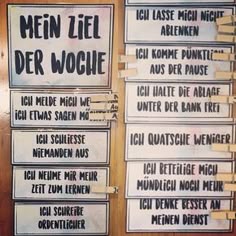 MEIN ZIEL
DER WOCHE
ICH MELDE MICH WE
ICH ETWAS SAGEN MÖ
ICH SCHLIESSE
NIEMANDEN AUS
ICH NEHME MIR MEHR
ZEIT ZUM LERNEN
ICH SCHREIBE
ORDENTLICHER
ICH LASSE MICH NICHT
ABLENKEN
ICH KOMME PÜNKTLI
AUS DER PAUSE
ICH HALTE DIE ABLAGE
UNTER DER BANK FREI
ICH QUATSCHE WENIGER
ICH BETEILIGE MICH
MÜNDLICH NOCH MEHR
ICH DENKE BESSER AN
MEINEN DIENST